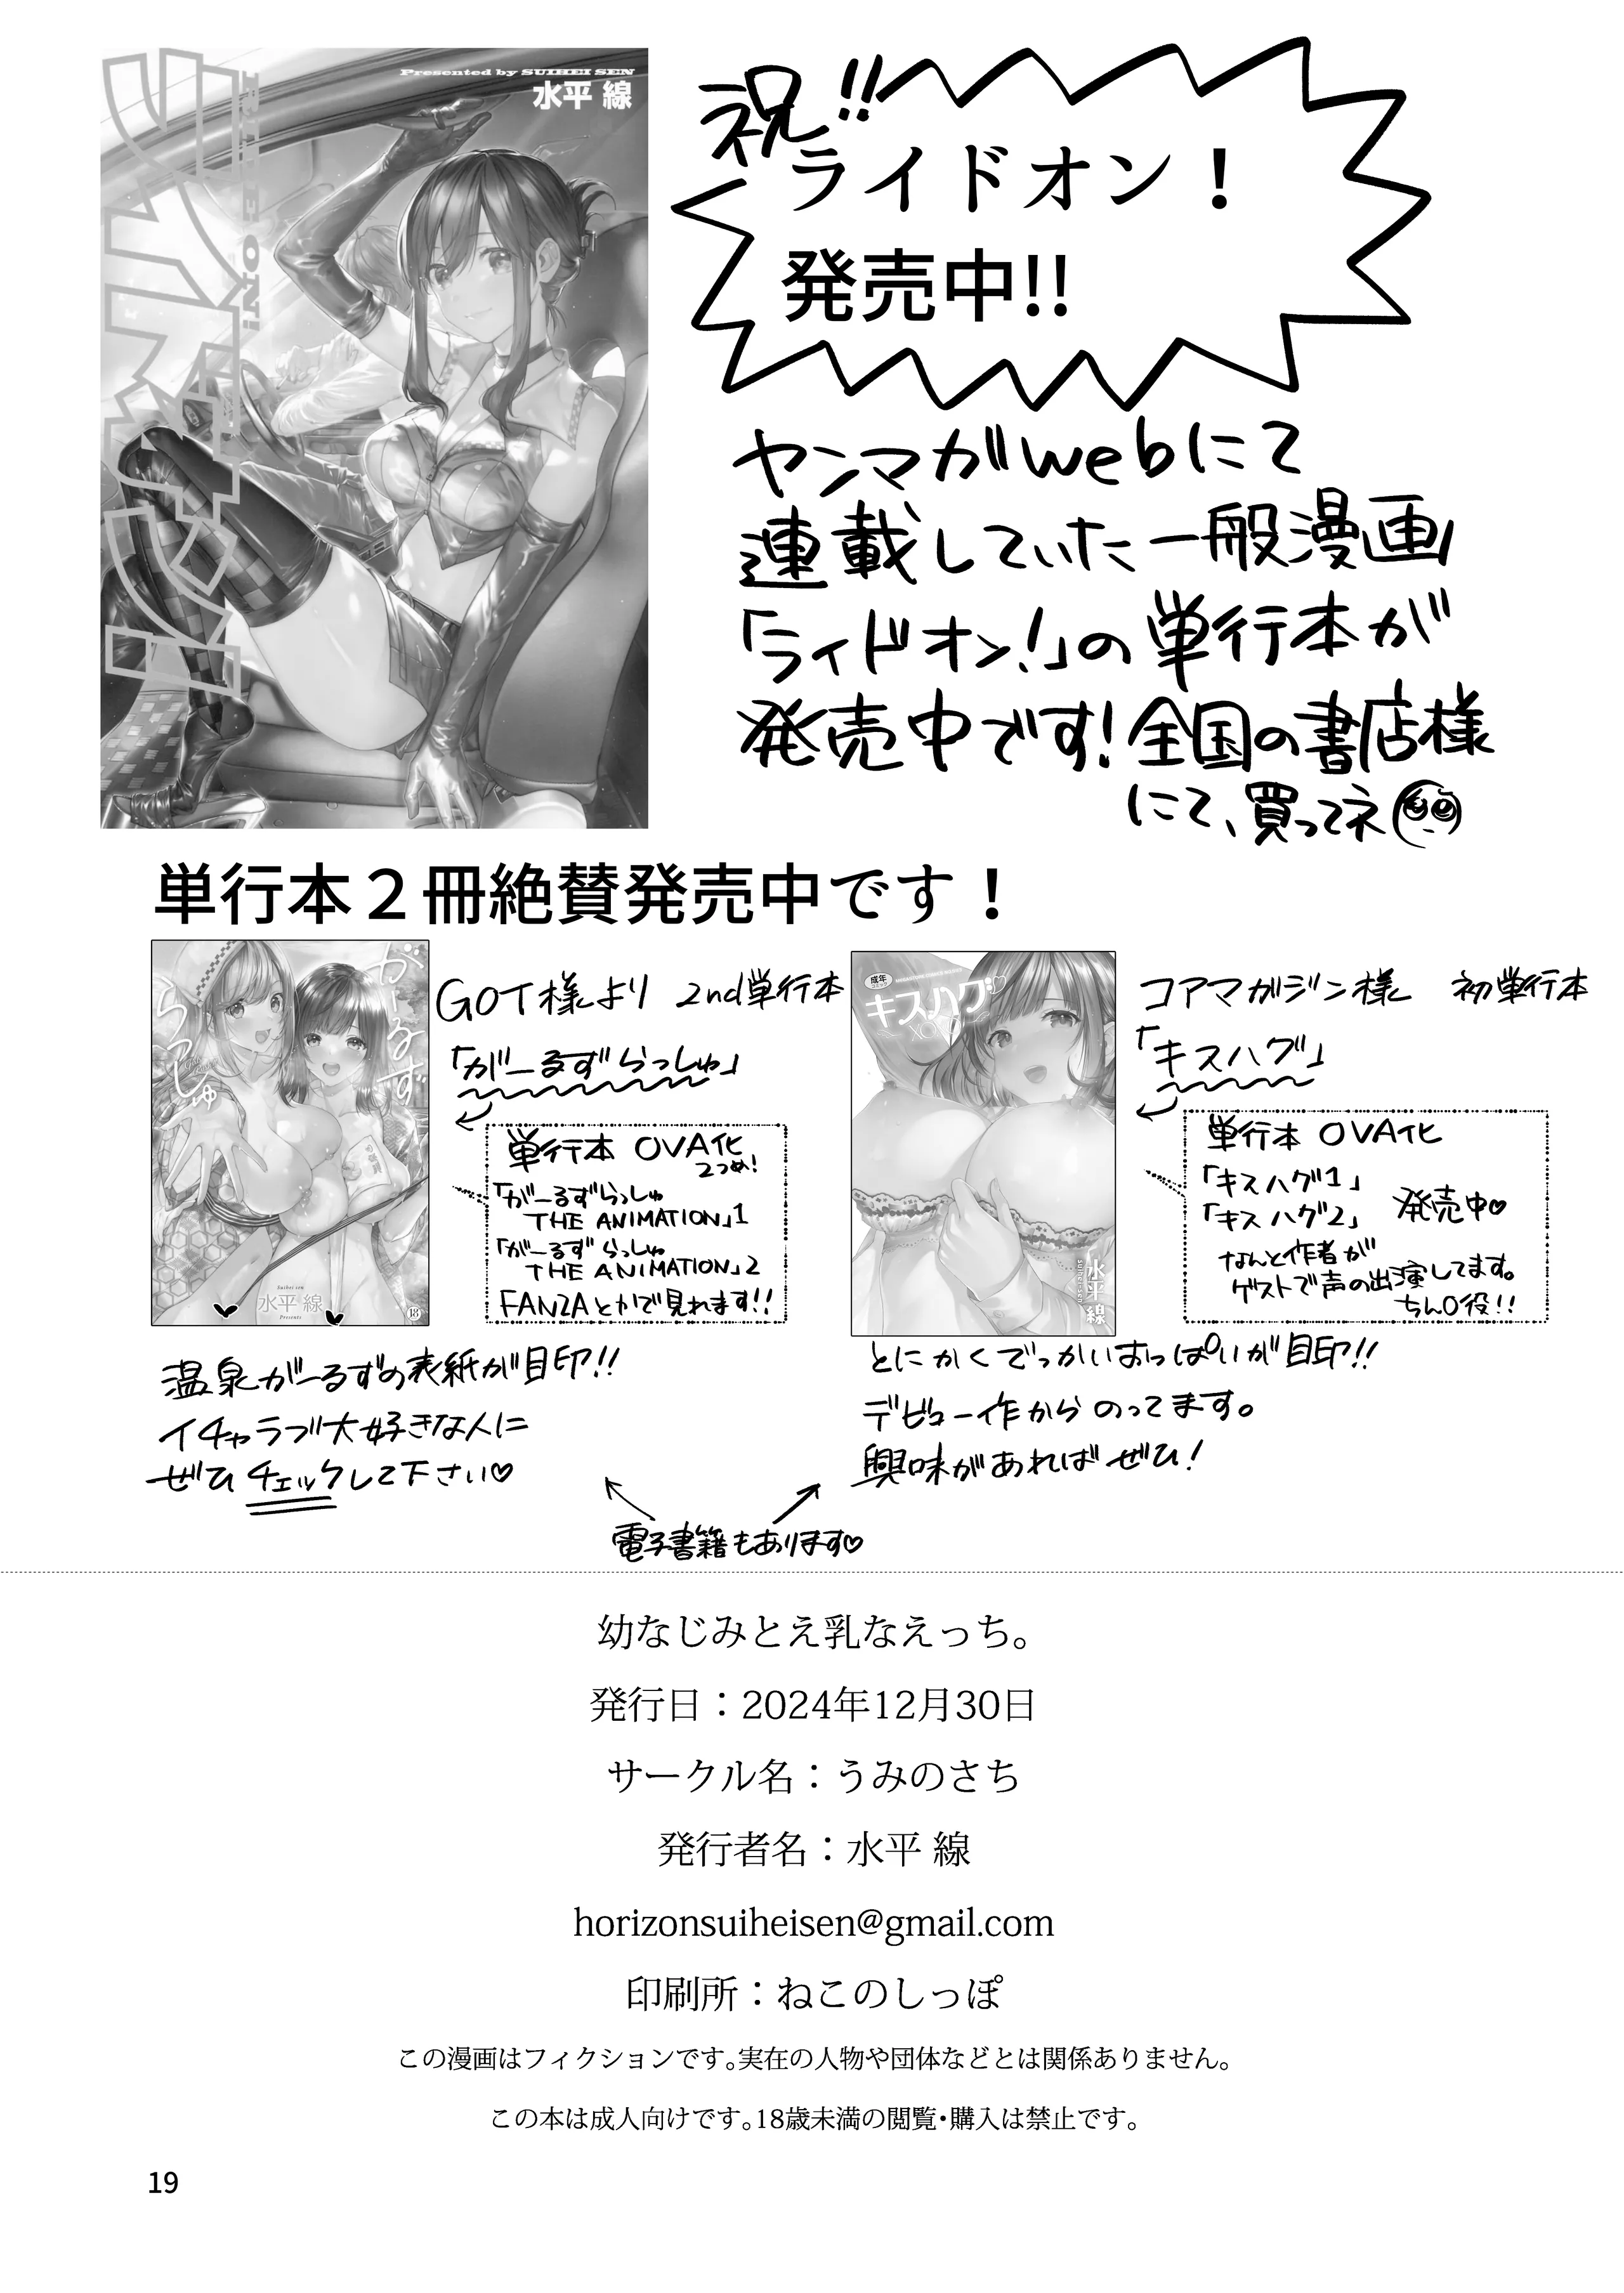 Presented by SUIHEI SEN
水平 線
RIDE ON!
ライドオン!
祝!!
ライドオン！
発売中!!
ヤンマガwebにて
連載していた一般漫画
「ライドオン!」の単行本が
発売中です!全国の書店様
にて、買ってネ
単行本２冊絶賛発売中です！
がーるず
らっしゅ
Suihei sen
水平 線
Presents
18
GOT様より 2nd単行本
「がーるずらっしゅ」
単行本 OVA化
2つめ!
「がーるずらっしゅ
THE ANIMATION」1
「がーるずらっしゅ
THE ANIMATION」2
FANZAとかで見れます!!
温泉がーるずの表紙が目印!!
イチャラブ大好きな人に
ぜひチェックして下さい♡
成年
キスハグ
XOXO
水平線
suiheisen
コアマガジン様 初単行本
「キスハグ」
単行本 OVA化
「キスハグ1」
「キスハグ2」 発売中♡
なんと作者が
ゲストで声の出演してます。
ちん〇役!!
とにかくでっかいおっぱいが目印!!
デビュー作からのってます。
興味があればぜひ!
電子書籍もあります♡
幼なじみとえ乳なえっち。
発行日：2024年12月30日
サークル名：うみのさち
発行者名：水平 線
horizonsuiheisen@gmail.com
印刷所：ねこのしっぽ
この漫画はフィクションです。実在の人物や団体などとは関係ありません。
この本は成人向けです。18歳未満の閲覧・購入は禁止です。
19